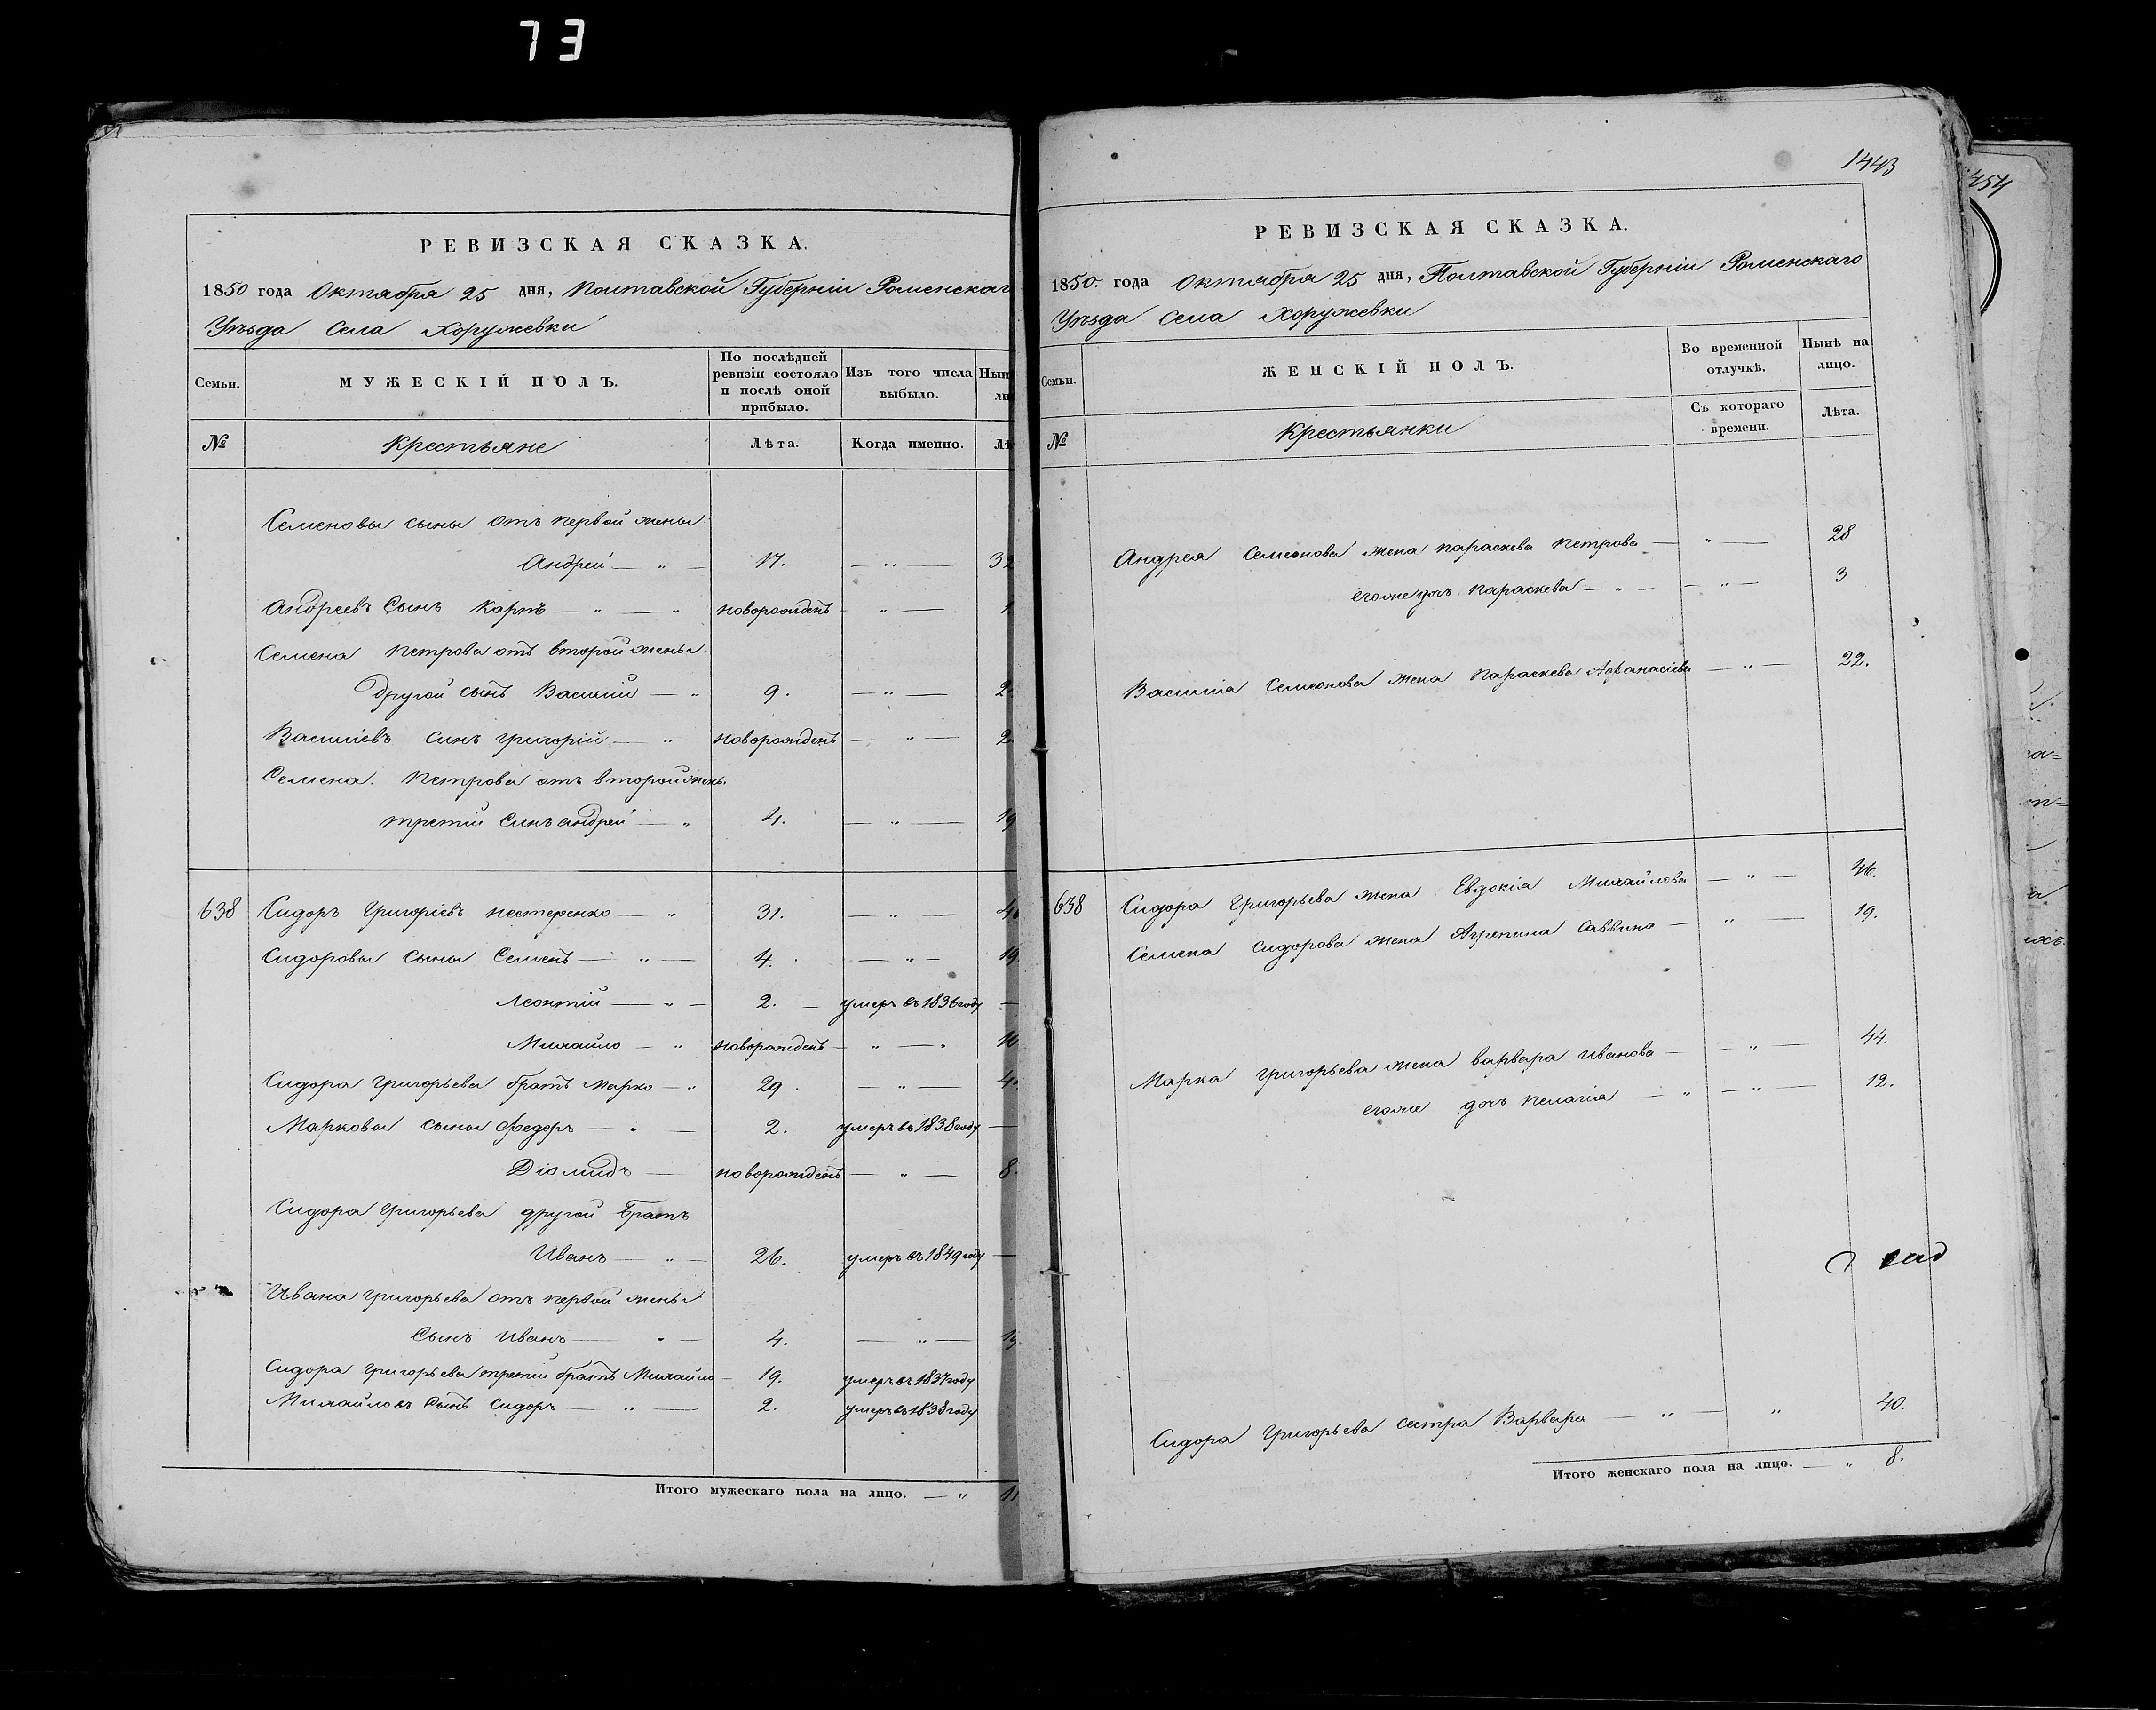 73
РЕВИЗСКАЯ СКАЗКА.
1850 года Октября 25 дня, Полтавской Губерніи Роменскаг
Уѣзда Села Хоружевки
Семьи.
МУЖЕСКІЙ ПОЛЪ.
По послѣдней
ревизіи состояло
и послѣ оной
прибыло.
Изъ того числа
выбыло.
Нын
ли
№
Крестьяне
Лѣта.
Когда именно.
Лѣ
Семеновы сыны отъ первой жены
Андрей — „ — 17. — „ — 32
Андреевъ Сынъ Карпъ — „ — „ новорожденъ — „ — 1.
Семена Петрова отъ второй жены
другой сынъ Василій — „ 9. — „ — 2
Василіевъ синъ григорій — „ новорожденъ — „ — 2.
Семена. Петрова отъ второй жены.
третій Синъ андрей — „ 4. — „ — 19
638 Сидоръ Григоріевъ нестеренко — „ 31. — „ — 4
Сидоровы сыны Семенъ — „ — 4. — „ — 19.
Леонтій — „ — 2. — умеръ въ 1836 году —
Михайло — „ новорожденъ — „ — „ 10
Сидора Григорьева братъ Марко — „ 29. — „ — 4.
Марковы сыны Федоръ — „ — 2. умеръ въ 1838 году —
Діомидъ — новорожденъ — „ — 8.
Сидора Григорьева другой Братъ
Иванъ — „ — 26. умеръ въ 1849 году —
Ивана григорьева отъ первой жены
Сынъ Иванъ — „ — 4. — „ — 19.
Сидора Григорьева третій братъ Михайло — 19. умеръ въ 1837 году
Михайловъ Сынъ Сидоръ — „ — 2. умеръ въ 1838 году
Итого мужескаго пола на лицо. — „ 11
1443
РЕВИЗСКАЯ СКАЗКА.
1850. года Октября 25 дня, Полтавской Губерніи Роменскаго
Уѣзда Села Хоружевки
Семьи.
ЖЕНСКІЙ ПОЛЪ.
Во временной
отлучкѣ.
Нынѣ на
лицо.
№
Крестьянки
Съ котораго
времени.
Лѣта.
Андрея Семенова жена параскева Петрова — „ — 28
егоже дочь Параскева — „ — — „ — 3
Василія Семенова жена Параскева Афанасіева — „ — 22.
638 Сидора Григорьева жена Евдокія Михайлова — „ — 46.
Семена Сидорова жена Агрепина Саввина — „ — 19.
Марка григорьева жена варвара иванова — — „ — 44.
егоже дочь пелагія — „ — „ — 12.
Сидора Григорьева сестра Варвара — „ — „ 40.
Итого женскаго пола на лицо. — „ 8.
454